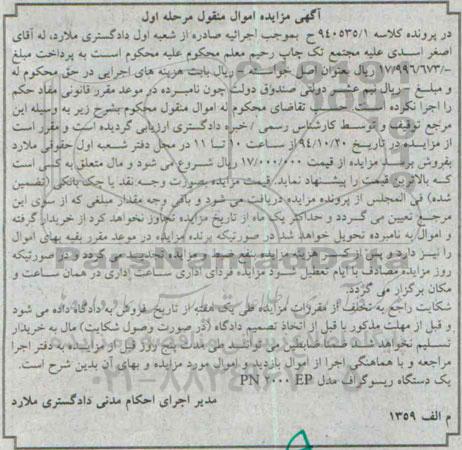 آگهی مزایده اموال منقول مرحله اول
در پرونده کلاسه ۹۴۰۵۳۵/۱ ح بموجب اجرائیه صادره از شعبه اول دادگستری ملارد، له آقای
اصغر اسدی علیه مجتمع تک چاپ رحیم معلم محکوم علیه محکوم است به پرداخت مبلغ
۱۷/۹۹۶/۶۷۳/- ریال بعنوان اصل خواسته - ریال بابت هزینه های اجرایی در حق محکوم له
و مبلغ - ریال نیم عشر دولتی صندوق دولت چون نامبرده در موعد مقرر قانونی مفاد حکم
را اجرا نکرده است حسب تقاضای محکوم له اموال منقول محکوم بشرح زیر به وسیله این
مرجع توقیف و توسط کارشناس رسمی / خبره دادگستری ارزیابی گردیده است و مقرر است
از مزایده در تاریخ ۹۴/۱۰/۲۰ از ساعت ۱۰ تا ۱۱ در محل دفتر شعبه اول حقوقی ملارد
بفروش برسد مزایده از قیمت ۱۷/۰۰۰/۰۰۰ ریال شروع می شود و مال متعلق به کسی است
که بالاترین قیمت را پیشنهاد نماید. قیمت مزایده بصورت وجه نقد یا چک بانکی (تضمین
شده) فی المجلس از پرونده مزایده دریافت می شود و باقی وجه مقدار مبلغی که از سوی این
مرجع تعیین می گردد و حداکثر یک ماه از تاریخ مزایده تجاوز نخواهد کرد از خریدار گرفته
و اموال به نامبرده تحویل خواهد شد در صورتیکه برنده مزایده در موعد مقرر بقیه بهای اموال
را نپردازد پس از کسر هزینه مزایده به نفع دولت مزایده تجدید می گردد در صورتیکه
روز مزایده مصادف با ایام تعطیل شود مزایده فردای اداری ساعت اداری در همان ساعت و
مکان برگزار می گردد.
شکایت راجع به تخلف از مقررات مزایده طی یک هفته از تاریخ فروش به دادگاه داده می شود
و قبل از مهلت مذکور یا قبل از اتخاذ تصمیم دادگاه (در صورت وصول شکایت) مال به خریدار
تسلیم نخواهد شد. ضمنا متقاضیان می توانند طی مدت پنج روز قبل از مزایده به دفتر اجرا
مراجعه و با هماهنگی اجرا از اموال بازدید و اموال مورد مزایده و بهای آن بدین شرح است.
یک دستگاه ریسوگراف مدل PN ۲۰۰۰ EP
مدیر اجرای احکام مدنی دادگستری ملارد
م الف ۱۳۵۹
ParsNamadData
۰۲۱-۸۸۳۴۹۶۷۰